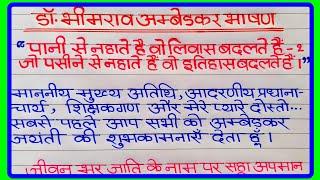 डॉ॰ भीमराव अम्बेडकर भाषण
“पानी से नहाते है वो लिवास बदलते है - २
जो पसीने से नहाते है वो इतिहास बदलते है।”
माननीय मुख्य अतिथि, आदरणीय प्रधाना-
चार्य, शिक्षकगण और मेरे प्यारे दोस्तो...
सबसे पहले आप सभी को अम्बेडकर
जयंती की शुभकामनाएँ देता हूँ।
जीवन भर जाति के नाम पर सहा अपमान